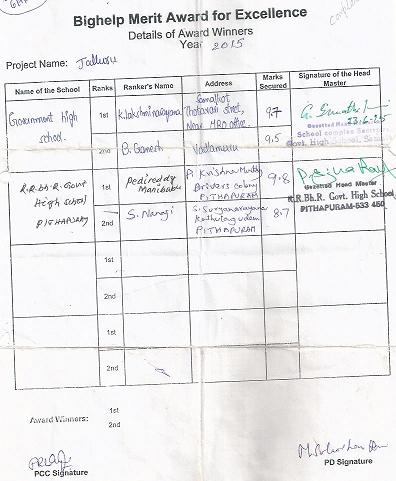 Bighelp Merit Award for Excellence
Details of Award Winners
Year 2015
Project Name: Jalluru
Name of the School Ranks Ranker's Name Address Marks Secured Signature of the Head Master
Government High school.
1st K. Lakshminarayana
Street,
Near MRO office.
9.7
2nd B. Ganesh Vadlamuru 9.5
Govt. High School,
R.R.Bh.R. Govt High School PITHAPURAM
1st Pedireddy Manibabu
P. Krishna Murthy
Drivers Colony
PITHAPURAM
9.8
Gazetted Head Master
R.R.Bh.R. Govt. High School,
PITHAPURAM-533 450
2nd S. Nanaji
S. Suryanarayana
PITHAPURAM
8.7
1st
2nd
1st
2nd
Award Winners: 1st
2nd
PCC Signature
PD Signature